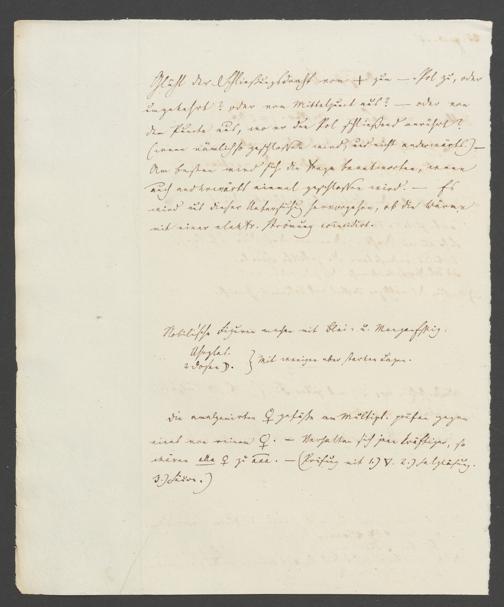 Glüht der Schließungsdraht vom + zum — Pol zu, oder
umgekehrt? oder vom Mittelpunct aus? — oder von
dem Puncte aus, wo er den Pol schließend berührt?
(wenn nämlich geschlossen wird, und nicht anderwärts.) —
Am besten wird sich die Frage beantworten, wenn
auch anderwärts einmal geschlossen wird. — Es
wird aus dieser Untersuchg hervorgehen, ob die Wärme
mit einer elektr. Strömung coincidirt.
Nobilische Figuren machen mit Blei- u. Manganessig.
2 Dosen
} Mit wenigen aber starken Lagen.
Die amalgamirten ♀ gefäße am Multipl. prüfen gegen
einet von reinem ♀. — Verhalten sich jene kräftiger, so
wären alle ♀ zu — (Prüfung mit 1.) 2.) Salzlösung.
3.) Säure.)